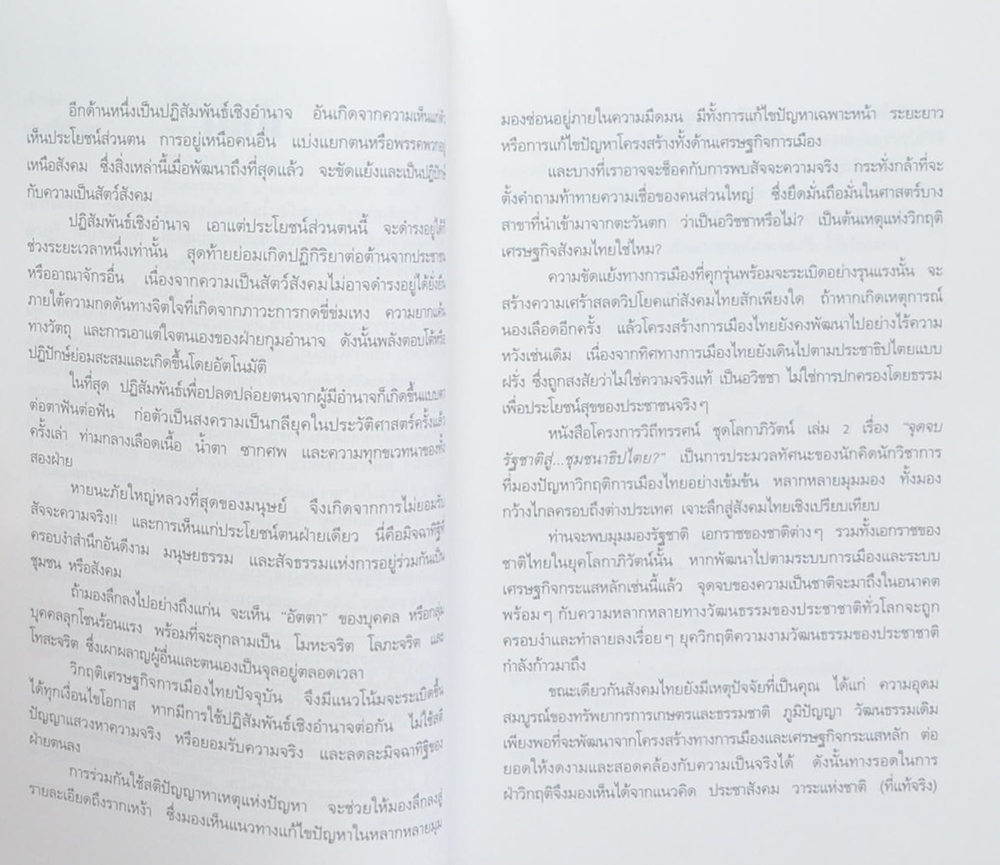 อีกด้านหนึ่งเป็นปฏิสัมพันธ์เชิงอำนาจ อันเกิดจากความเห็นแก่ตัว
เห็นประโยชน์ส่วนตน การอยู่เหนือคนอื่น แบ่งแยกตนหรือพรรคพวกอยู่
เหนือสังคม ซึ่งสิ่งเหล่านี้เมื่อพัฒนาถึงที่สุดแล้ว จะขัดแย้งและเป็นปฏิปักษ์
กับความเป็นสัตว์สังคม
ปฏิสัมพันธ์เชิงอำนาจ เอาแต่ประโยชน์ส่วนตนนี้ จะดำรงอยู่ได้ก็
ช่วงระยะเวลาหนึ่งเท่านั้น สุดท้ายย่อมเกิดปฏิกิริยาต่อต้านจากประชาชน
หรืออาณาจักรอื่น เนื่องจากความเป็นสัตว์สังคมไม่อาจดำรงอยู่ได้ยั่งยืน
ภายใต้ความกดดันทางจิตใจที่เกิดจากภาวะการกดขี่ข่มเหง ความยากแค้น
ทางวัตถุ และการเอาแต่ใจตนเองของฝ่ายกุมอำนาจ ดังนั้นพลังตอบโต้หรือ
ปฏิปักษ์ย่อมสะสมและเกิดขึ้นโดยอัตโนมัติ
ในที่สุด ปฏิสัมพันธ์เพื่อปลดปล่อยตนจากผู้มีอำนาจก็เกิดขึ้นแบบตา
ต่อตาฟันต่อฟัน ก่อตัวเป็นสงครามเป็นกลียุคในประวัติศาสตร์ครั้งแล้ว
ครั้งเล่า ท่ามกลางเลือดเนื้อ น้ำตา ซากศพ และความทุกขเวทนาของทั้ง
สองฝ่าย
หายนะภัยใหญ่หลวงที่สุดของมนุษย์ จึงเกิดจากการไม่ยอมรับ
สัจจะความจริง!! และการเห็นแก่ประโยชน์ตนฝ่ายเดียว นี่คือมิจฉาทิฐิที่
ครอบงำสำนึกอันดีงาม มนุษยธรรม และสัจธรรมแห่งการอยู่ร่วมกันเป็น
ชุมชน หรือสังคม
ถ้ามองลึกลงไปอย่างถึงแก่น จะเห็น "อัตตา" ของบุคคล หรือกลุ่ม
บุคคลลุกโชนร้อนแรง พร้อมที่จะลุกลามเป็น โมหะจริต โลภะจริต และ
โทสะจริต ซึ่งเผาผลาญผู้อื่นและตนเองเป็นจุลอยู่ตลอดเวลา
วิกฤติเศรษฐกิจการเมืองไทยปัจจุบัน จึงมีแนวโน้มจะระเบิดขึ้น
ได้ทุกเงื่อนไขโอกาส หากมีการใช้ปฏิสัมพันธ์เชิงอำนาจต่อกัน ไม่ใช้สติ
ปัญญาแสวงหาความจริง หรือยอมรับความจริง และลดละมิจฉาทิฐิของ
ฝ่ายตนลง
การร่วมกันใช้สติปัญญาหาเหตุแห่งปัญหา จะช่วยให้มองลึกลงสู่
รายละเอียดถึงรากเหง้า ซึ่งมองเห็นแนวทางแก้ไขปัญหาในหลากหลายมุม
มองซ่อนอยู่ภายในความมืดมน มีทั้งการแก้ไขปัญหาเฉพาะหน้า ระยะยาว
หรือการแก้ไขปัญหาโครงสร้างทั้งด้านเศรษฐกิจการเมือง
และบางทีเราอาจจะช็อคกับการพบสัจจะความจริง กระทั่งกล้าที่จะ
ตั้งคำถามท้าทายความเชื่อของคนส่วนใหญ่ ซึ่งยึดมั่นถือมั่นในศาสตร์บาง
สาขาที่นำเข้ามาจากตะวันตก ว่าเป็นอวิชชาหรือไม่? เป็นต้นเหตุแห่งวิกฤติ
เศรษฐกิจสังคมไทยใช่ไหม?
ความขัดแย้งทางการเมืองที่คุกรุ่นพร้อมจะระเบิดอย่างรุนแรงนั้น จะ
สร้างความเศร้าสลดวิปโยคแก่สังคมไทยสักเพียงใด ถ้าหากเกิดเหตุการณ์
นองเลือดอีกครั้ง แล้วโครงสร้างการเมืองไทยยังคงพัฒนาไปอย่างไร้ความ
หวังเช่นเดิม เนื่องจากทิศทางการเมืองไทยยังเดินไปตามประชาธิปไตยแบบ
ฝรั่ง ซึ่งถูกสงสัยว่าไม่ใช่ความจริงแท้ เป็นอวิชชา ไม่ใช่การปกครองโดยธรรม
เพื่อประโยชน์สุขของประชาชนจริงๆ
หนังสือโครงการวิถีทรรศน์ ชุดโลกาภิวัตน์ เล่ม 2 เรื่อง "จุดจบ
รัฐชาติสู่...ชุมชนาธิปไตย?" เป็นการประมวลทัศนะของนักคิดนักวิชาการ
ที่มองปัญหาวิกฤติการเมืองไทยอย่างเข้มข้น หลากหลายมุมมอง ทั้งมอง
กว้างไกลครอบถึงต่างประเทศ เจาะลึกสู่สังคมไทยเชิงเปรียบเทียบ
ท่านจะพบมุมมองรัฐชาติ เอกราชของชาติต่างๆ รวมทั้งเอกราชของ
ชาติไทยในยุคโลกาภิวัตน์นั้น หากพัฒนาไปตามระบบการเมืองและระบบ
เศรษฐกิจกระแสหลักเช่นนี้แล้ว จุดจบของความเป็นชาติจะมาถึงในอนาคต
พร้อมๆ กับความหลากหลายทางวัฒนธรรมของประชาชาติทั่วโลกจะถูก
ครอบงำและทำลายลงเรื่อยๆ ยุควิกฤติความงามวัฒนธรรมของประชาชาติ
กำลังก้าวมาถึง
ขณะเดียวกันสังคมไทยยังมีเหตุปัจจัยที่เป็นคุณ ได้แก่ ความอุดม
สมบูรณ์ของทรัพยากรการเกษตรและธรรมชาติ ภูมิปัญญา วัฒนธรรมเดิม
เพียงพอที่จะพัฒนาจากโครงสร้างทางการเมืองและเศรษฐกิจกระแสหลัก ต่อ
ยอดให้งดงามและสอดคล้องกับความเป็นจริงได้ ดังนั้นทางรอดในการ
ฝ่าวิกฤติจึงมองเห็นได้จากแนวคิด ประชาสังคม วาระแห่งชาติ (ที่แท้จริง)